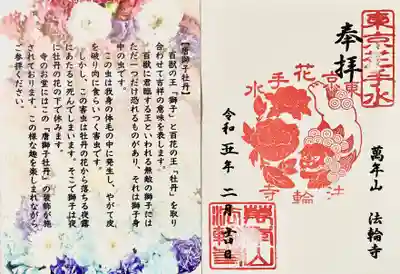 東京花手水
奉拝
萬年山 法輪寺
東京花手水
法輪寺
令和五年 二月吉日
【唐獅子牡丹】
百獣の王「獅子」と百花の王「牡丹」を取り
合わせて吉祥の意味を表します。
百獣に君臨する王といわれる無敵の獅子には
ただ一つだけ恐れるものがあり、それは獅子身
中の虫です。
この虫は我身の体毛の中に発生し、やがて皮
を破り肉に食らいつく害虫です。
しかし、この害虫は牡丹の花から落ちる夜露
にあたると死んでしまいます。そこで獅子は夜
に牡丹の花の下で休みます。
寺のお堂にはこの「唐獅子牡丹」の装飾が施
されております。この様な趣を楽しまれながら、
ご参拝ください。